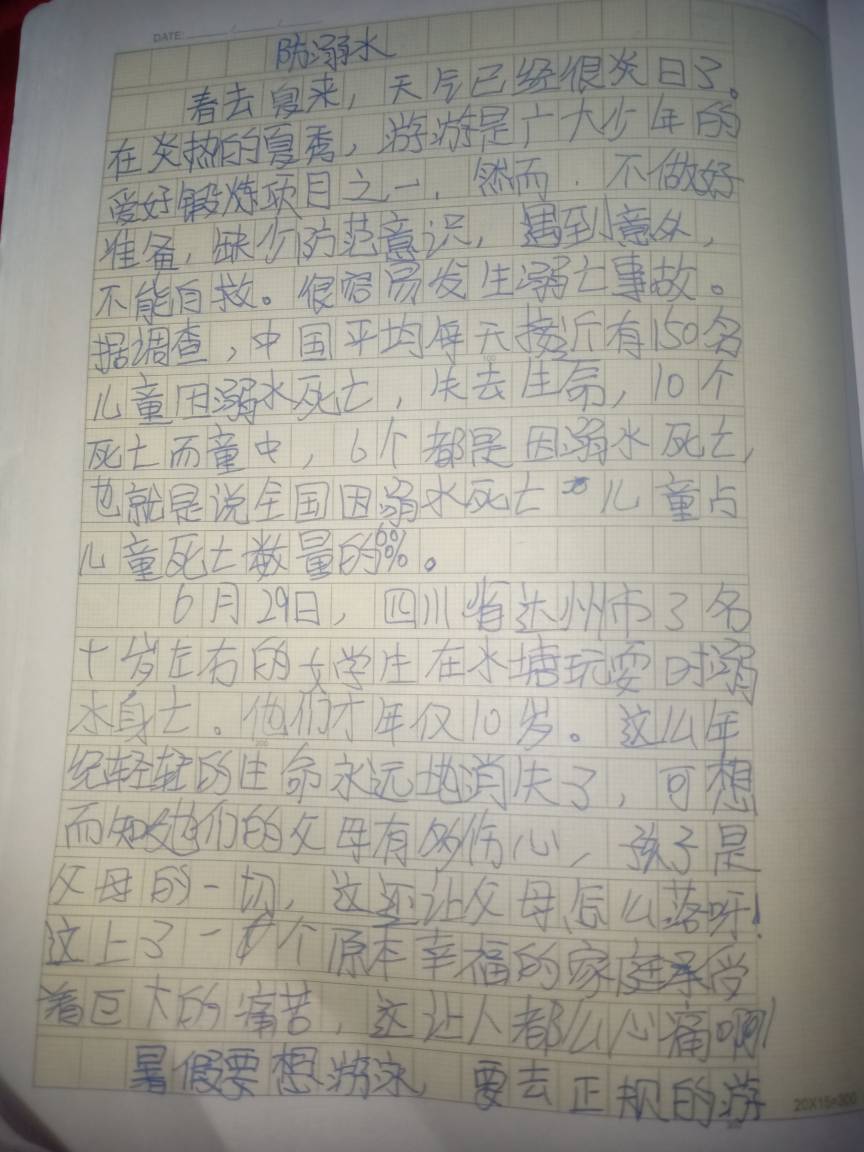 DATE:
防溺水
春去夏来，天气已经很炎日了。
在炎热的夏秀，游游是广大少年的
爱好锻炼项目之一．然而．不做好
准备，缺少防范意识，遇到意外，
不能自救。很容易发生溺亡事故。
据调查，中国平均每天接近有150名
儿童因溺水死亡，失去生命，10个
死亡而童中，6个都是因溺水死亡，
也就是说全国因溺水死亡 儿童占
儿童死亡数量的60%。
6月29日，四川省达州市3名
十岁左右的女学生在水塘玩耍时溺
水身亡。他们才年仅10岁。这么年
纪轻轻的生命永远地消失了，可想
而知他们的父母有多伤心，孩子是
父母的一切，这还让父母怎么落呀！
这上了一个原本幸福的家庭承受
着巨大的痛苦，这让人都么心痛啊！
暑假要想游泳，要去正规的游
20X15=300